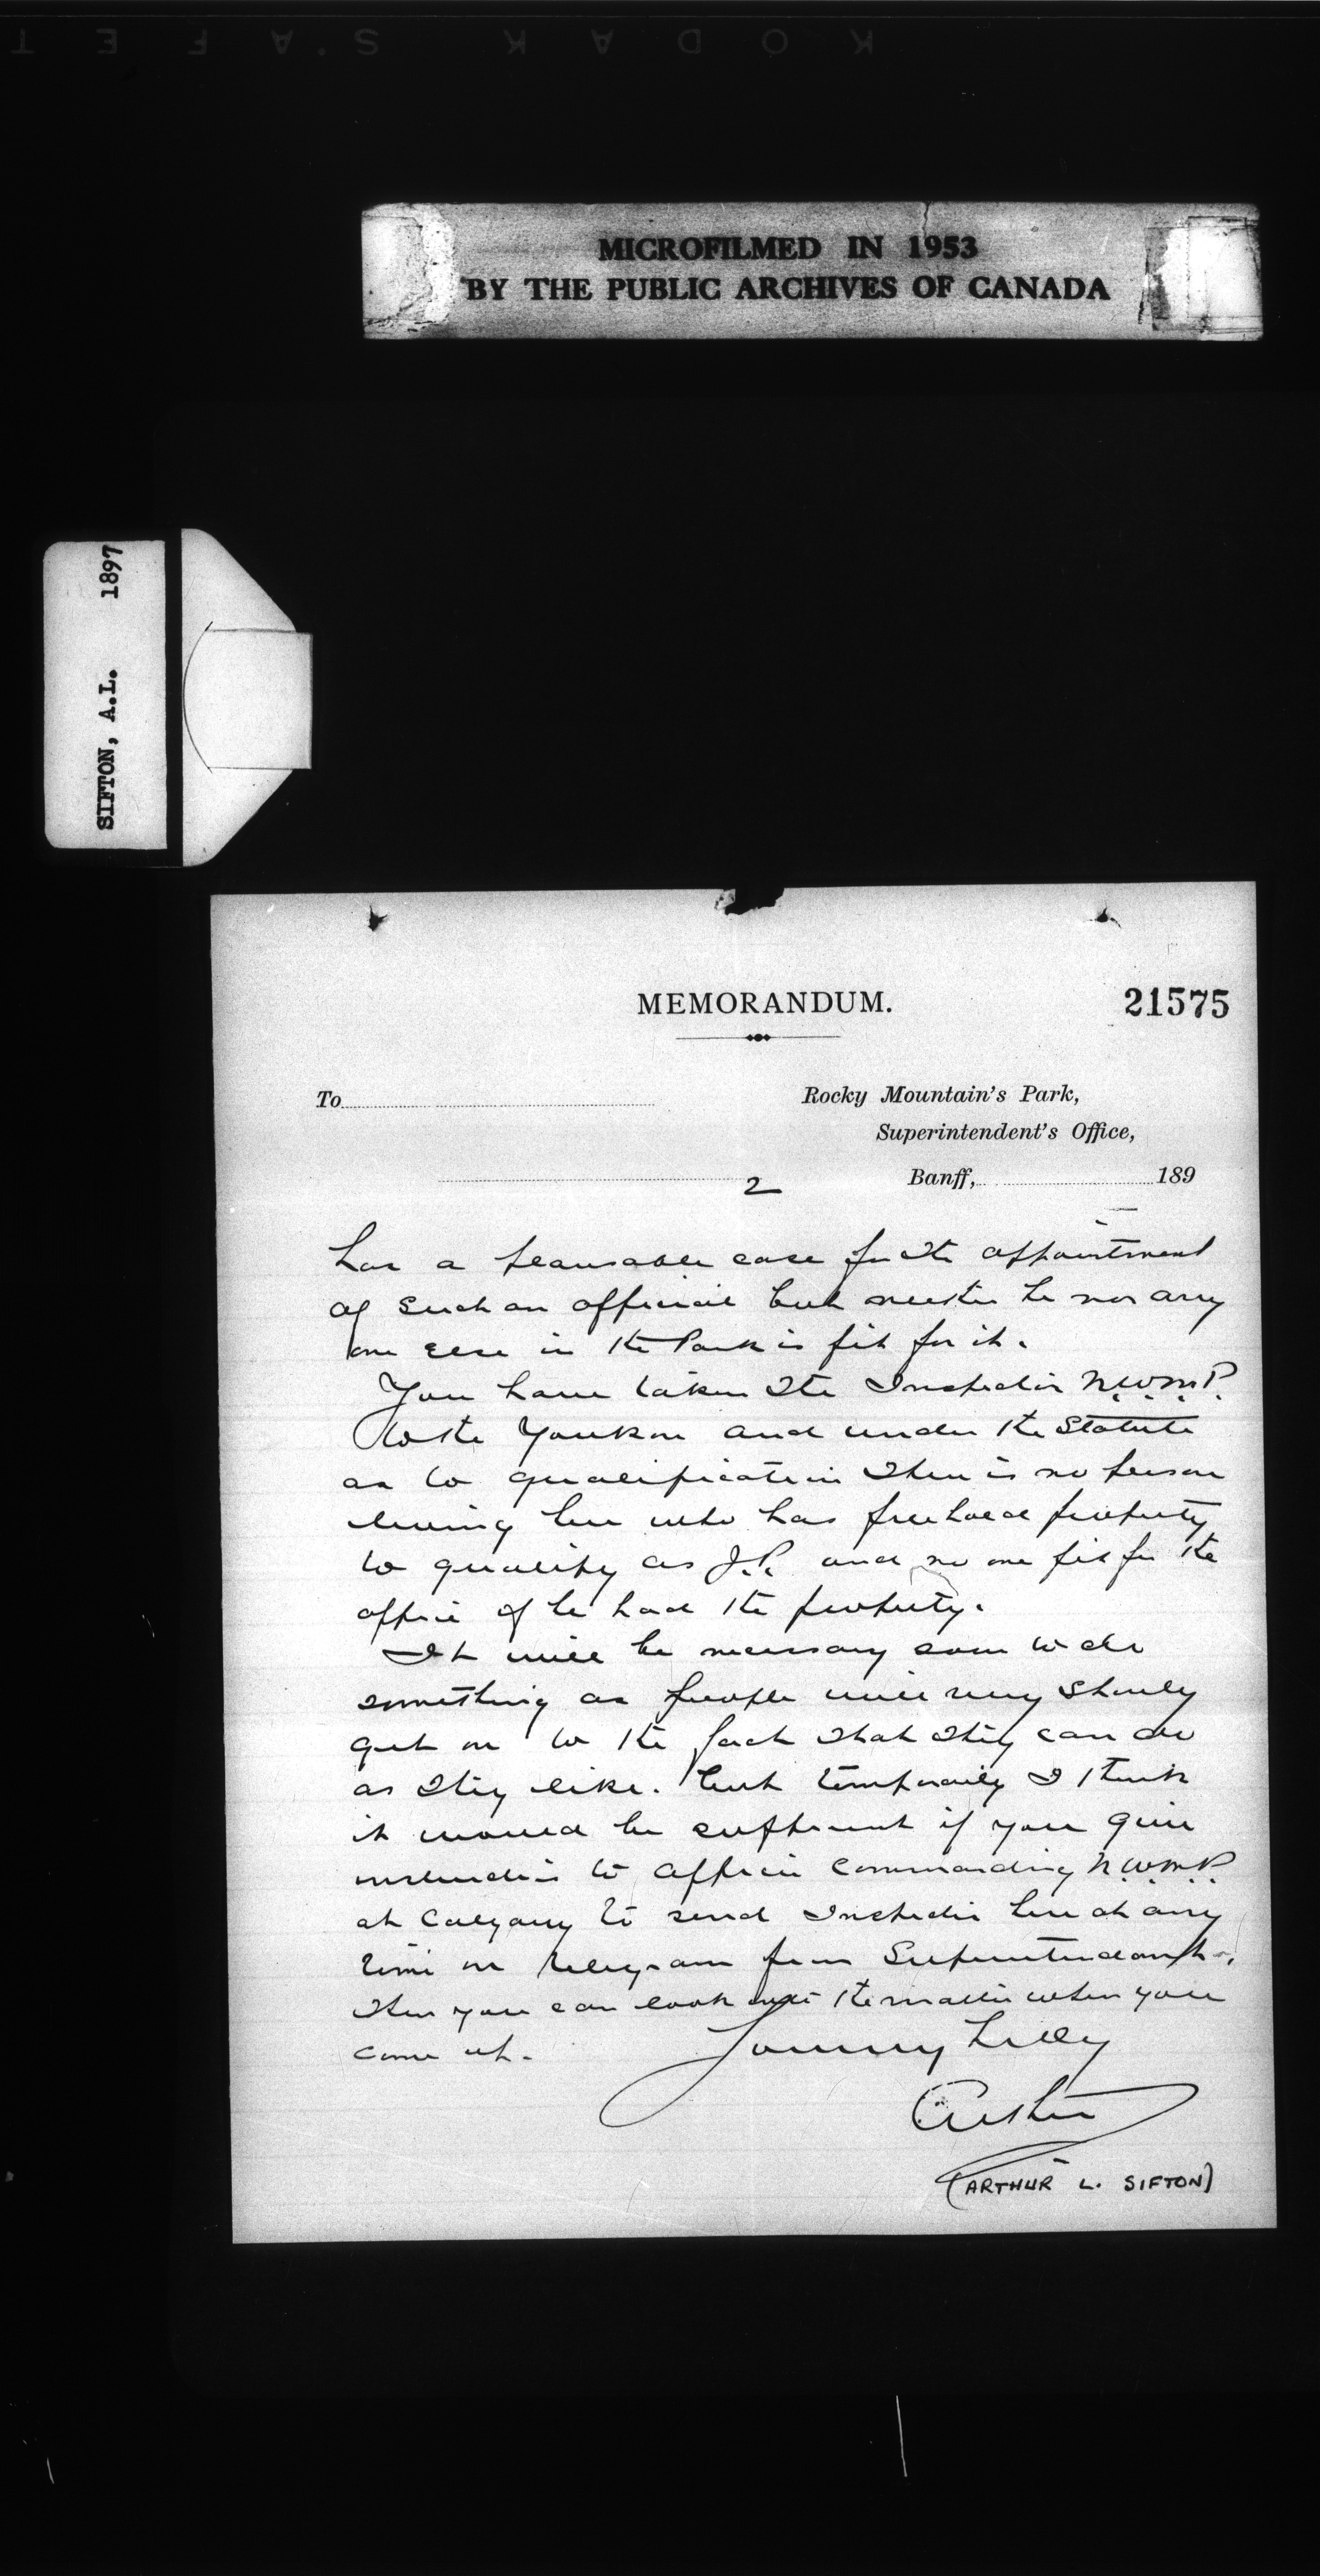 KODAK SAFET
MICROFILMED IN 1953
BY THE PUBLIC ARCHIVES OF CANADA
SIFTON, A.L. 1897
MEMORANDUM.
21575
To
Rocky Mountain's Park,
Superintendent's Office,
Banff, 189
2
has a plausable case for the appointment
of such an official but neither he nor any
one else in the Park is fit for it.
You have taken the Inspector N.W.M.P.
to the Youkon and under the Statute
as to qualification there is no person
living here who has freehold property
to qualify as J.P. and no one fit for the
office if he had the property.
It will be necessary soon to do
something as people will very shortly
get on to the fact that they can do
as they like. but temporarily I think
it would be sufficient if you give
instructions to Officer Commanding N.W.M.P.
at Calgary to send Inspector here at any
time on telegram from Superintendent.
then you can look into the matter when you
come up.
Yours truly
Arthur
(ARTHUR L. SIFTON)